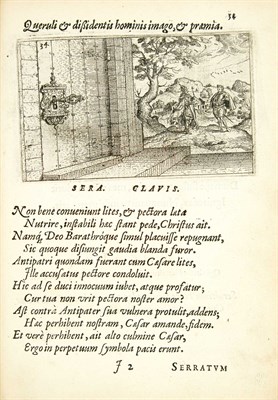 34
Queruli & dissidentis hominis imago, & præmia.
34.
SERA. CLAVIS.
Non bene conueniunt lites, & pectora læta
Nutrire, instabili hæc stant pede, Christus ait.
Namq, Deo Barathróque simul placuisse repugnant,
Sic quoque disiungit gaudia blanda furor.
Antipatri quondam fuerant cum Cæsare lites,
Ille accusatus pectore condoluit.
Hic ad se duci innocuum iubet, atque profatur;
Cur tua non vrit pectora noster amor?
Ast contrà Antipater sua vulnera protulit, addens;
Hæc perhibent nostram, Cæsar amande, fidem.
Et verè perhibent, ait alto culmine Cæsar,
Ergo in perpetuum symbola pacis erunt.
J 2 SERRATVM